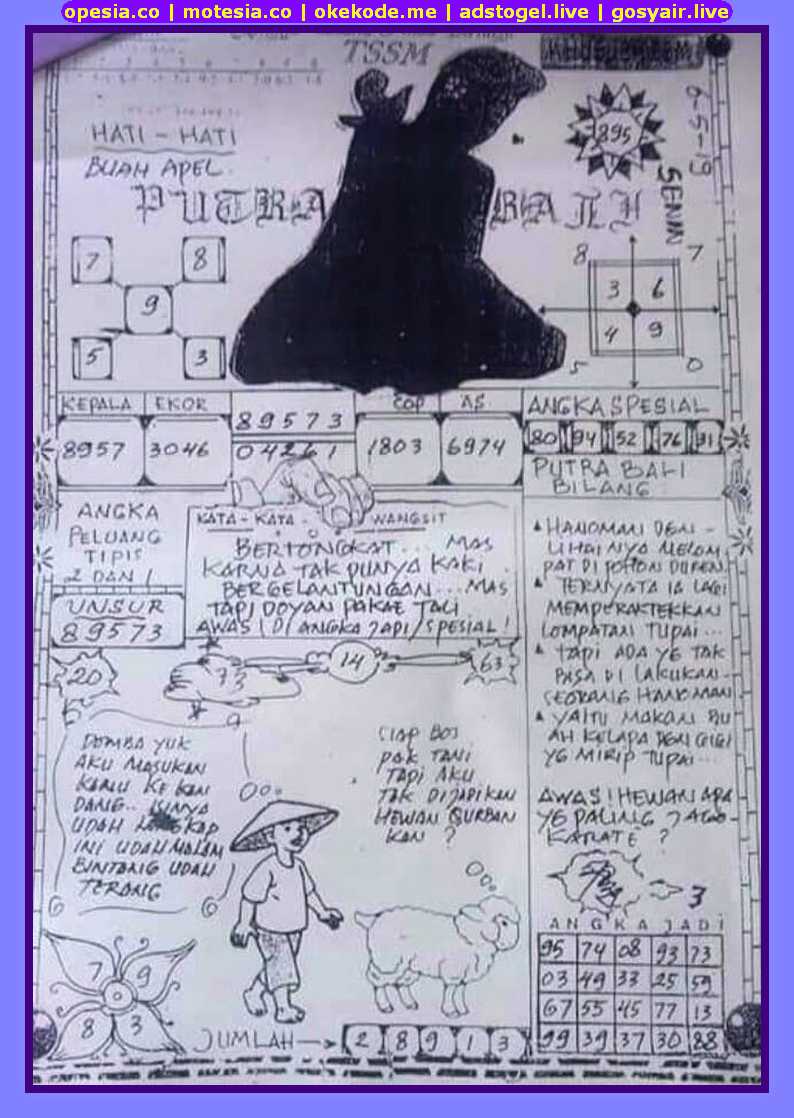 opesia.co | motesia.co | okekode.me | adstogel.live | gosyair.live
TSSM
HATI - HATI
BUAH APEL
895
6-5-19
SENIN
PUTRA BALI
7 8
9
5 3
8 7
3 6
4 9
5 0
KEPALA EKOR
8957 3046
89573
04261
COP AS
1803 6974
ANGKA SPESIAL
80 94 52 76 31
PUTRA BALI
BILANG
ANGKA
PELUANG
TIPIS
2 DAN 1
UNSUR
89573
KATA - KATA WANGSIT
BERTONGKAT... MAS
KARNA TAK PUNYA KAKI
BERGELANTUNGAN... MAS
TAPI DOYAN PAKAE TALI
AWAS! DI ANGKA JAPI/SPESIAL!
HANOMAN DEM -
LIHAINYA MELOM
PAT DI POHON DUREN
TERNYATA IA LAGI
MEMPERAKTEKKAN
LOMPATAN TUPAI...
TAPI ADA YG TAK
BISA DI LAKUKAN
SEORANG HANOMAN
YAITU MAKAN BU
AH KELAPA DEN GIGI
YG MIRIP TUPAI...
AWAS! HEWAN APA
YG PALING JAGO
KARATE ?
3
20
73
14
63
9
DOMBA YUK
AKU MASUKAN
KAMU KE KAN
DANG.. ISINYA
UDAH LENGKAP
INI UDAH MALAM
BINTANG UDAH
TERANG
SIAP BOS
PAK TANI
TAPI AKU
TAK DIJADIKAN
HEWAN QURBAN
KAN ?
7 9
8 3
JUMLAH 2 8 9 1 3
ANGKA JADI
95 74 08 93 73
03 49 33 25 59
67 55 45 77 13
99 39 37 30 88